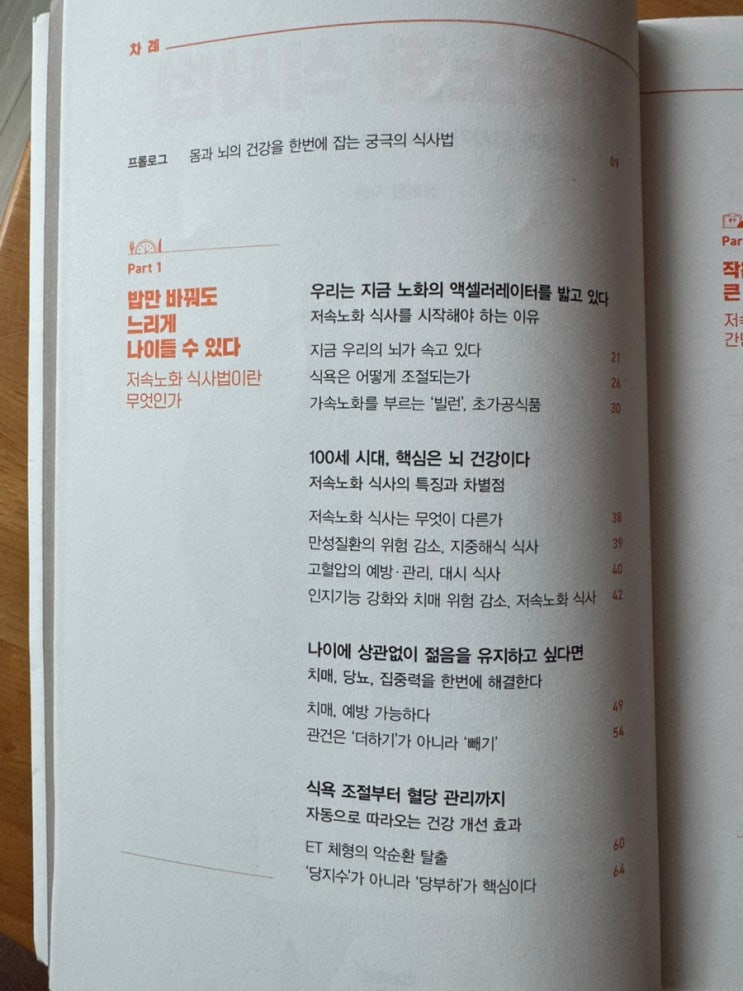 차례
프롤로그 몸과 뇌의 건강을 한번에 잡는 궁극의 식사법 09
Part 1
밥만 바꿔도
느리게
나이들 수 있다
저속노화 식사법이란
무엇인가
우리는 지금 노화의 액셀러레이터를 밟고 있다
저속노화 식사를 시작해야 하는 이유
지금 우리의 뇌가 속고 있다 21
식욕은 어떻게 조절되는가 26
가속노화를 부르는 ‘빌런’, 초가공식품 30
100세 시대, 핵심은 뇌 건강이다
저속노화 식사의 특징과 차별점
저속노화 식사는 무엇이 다른가 38
만성질환의 위험 감소, 지중해식 식사 39
고혈압의 예방·관리, 대시 식사 40
인지기능 강화와 치매 위험 감소, 저속노화 식사 42
나이에 상관없이 젊음을 유지하고 싶다면
치매, 당뇨, 집중력을 한번에 해결한다
치매, 예방 가능하다 49
관건은 ‘더하기’가 아니라 ‘빼기’ 54
식욕 조절부터 혈당 관리까지
자동으로 따라오는 건강 개선 효과
ET 체형의 악순환 탈출 60
‘당지수’가 아니라 ‘당부하’가 핵심이다 64
큰